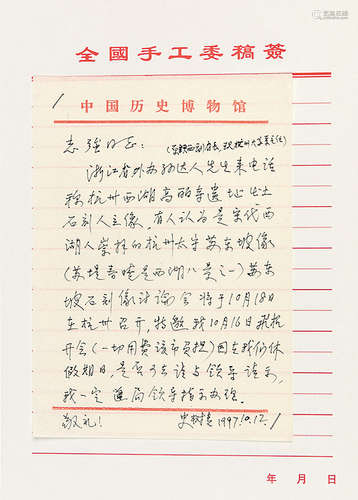 全國手工委稿簽
1
中国历史博物馆
志强同志：
浙江省外办孙达人先生来电话
称杭州西湖高丽寺遗址出土
石刻人主像。有人认为是宋代西
湖人崇拜的杭州太守苏东坡像
(苏堤春晓是西湖八景之一)苏东
坡石刻像讨论会将于10月18日
在杭州召开，特邀我10月16日到杭
开会(一切用费该市负担)因在我们休
假期日，是否可去请与领导请示，
我一定遵局领导指示办理。
敬礼！
史树青 1997.10.12.
年 月 日